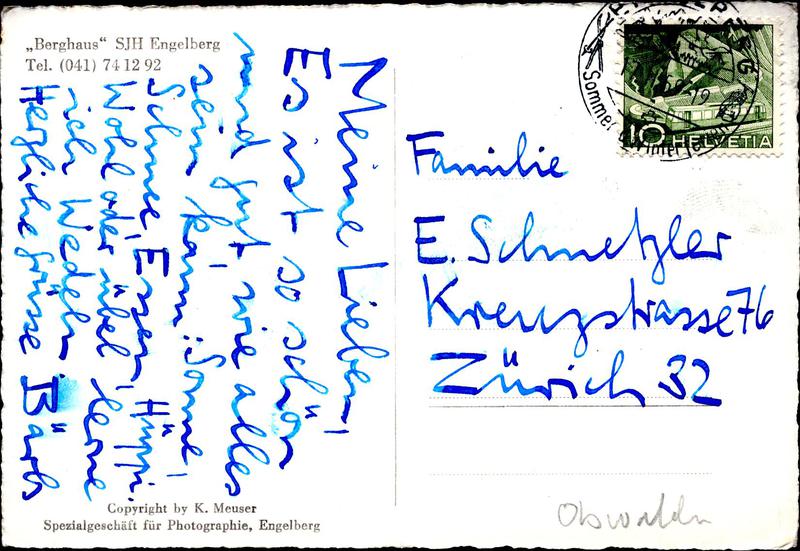 „Berghaus“ SJH Engelberg
Tel. (041) 74 12 92
Meine Lieben,
Es ist so schön
und gut, wie alles
sein kann: Sonne,
Schnee, Essen, Hüppi.
Wohl oder übel lerne
ich Wedeln.
Herzliche Grüsse Bärb
Copyright by K. Meuser
Spezialgeschäft für Photographie, Engelberg
Sommer
Winter
10
HELVETIA
Familie
E. Schmetzler
Kreuzstrasse 76
Zürich 32
Obwalden